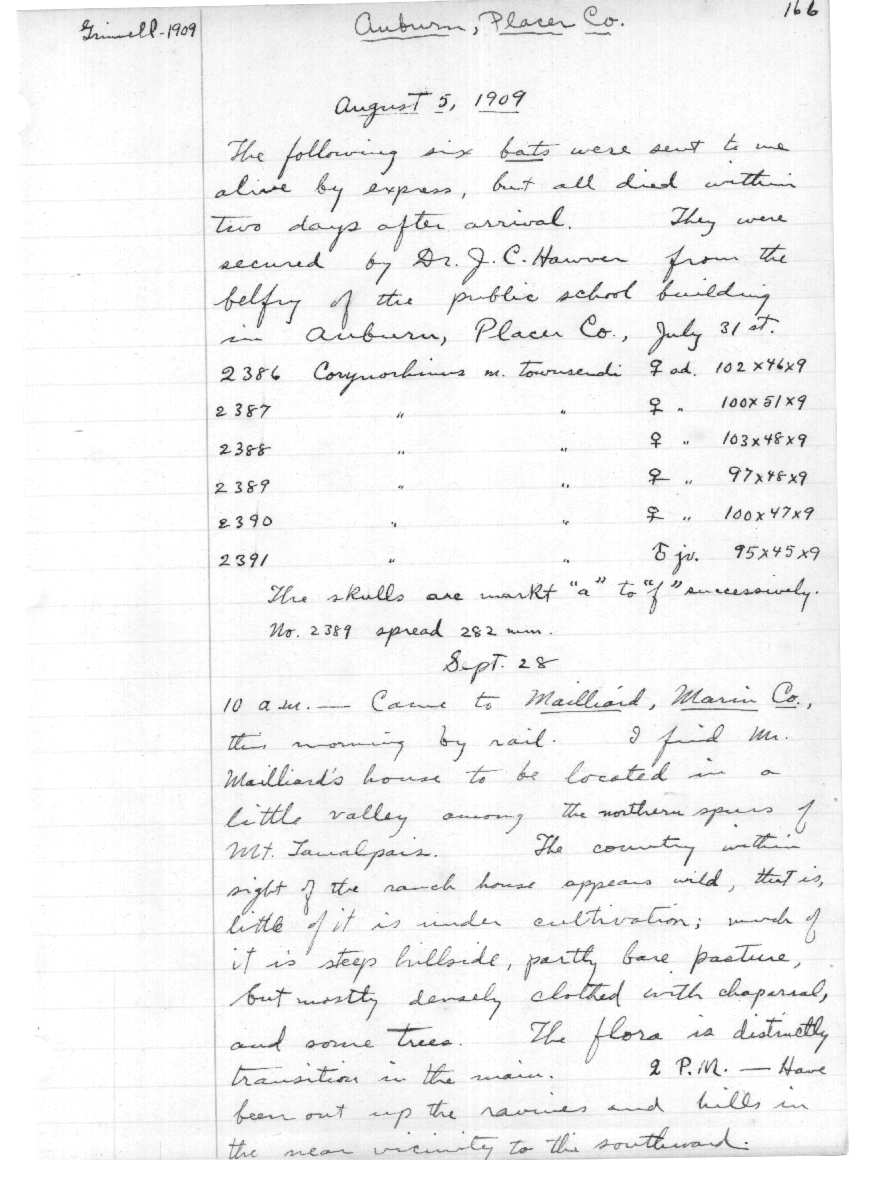 Grinnell-1909
Auburn, Placer Co.
166
August 5, 1909
The following six bats were sent to me
alive by express, but all died within
two days after arrival. They were
secured by Dr. J. C. Hawver from the
belfry of the public school building
in Auburn, Placer Co., July 31st.
2386 Corynorhinus m. townsendi ♀ ad. 102x46x9
2387 " " ♀ " 100x51x9
2388 " " ♀ " 103x48x9
2389 " " ♀ " 97x48x9
2390 " " ♀ " 100x47x9
2391 " " ♂ jv. 95x45x9
The skulls are markt "a" to "f" successively.
No. 2389 spread 282 mm.
Sept. 28
10 a.m. — Came to Mailliard, Marin Co.,
this morning by rail. I find Mr.
Mailliard's house to be located in a
little valley among the northern spurs of
Mt. Tamalpais. The country within
sight of the ranch house appears wild, that is,
little of it is under cultivation; much of
it is steep hillside, partly bare pasture,
but mostly densely clothed with chaparral,
and some trees. The flora is distinctly
transition in the main. 2 P.M. — Have
been out up the ravines and hills in
the near vicinity to the southward.